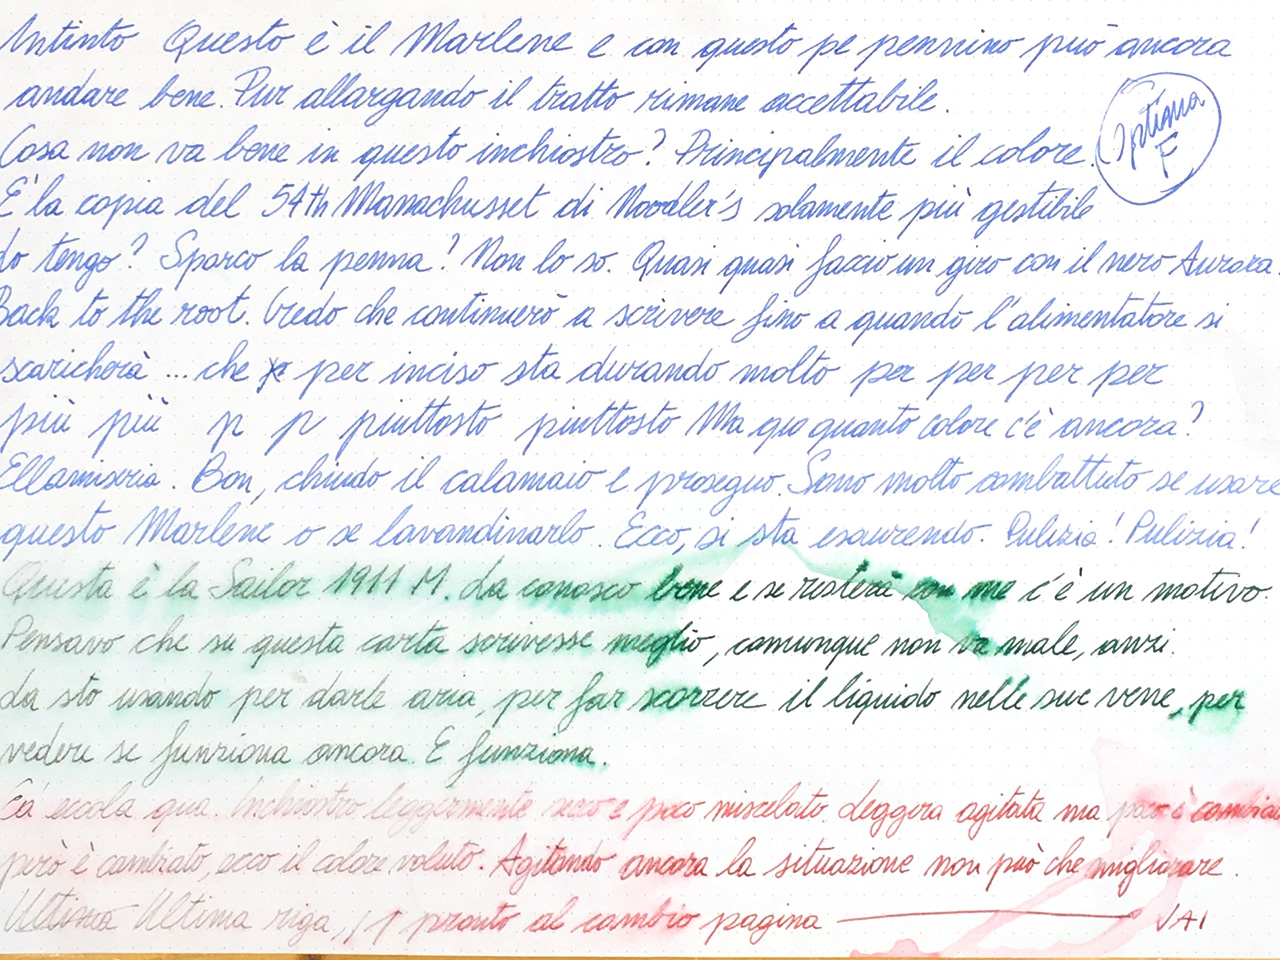 Intinto Questo è il Marlene e con questo pe pennino può ancora
andare bene. Pur allargando il tratto rimane accettabile.
Optima
F
Cosa non va bene in questo inchiostro? Principalmente il colore.
E' la copia del 54th Manachusset di Noodler's solamente più gestibile
Lo tengo? Sporco la penna? Non lo so. Quasi quasi faccio un giro con il nero Aurora.
Back to the root. Credo che continuerò a scrivere fino a quando l'alimentatore si
scaricherà ... che per inciso sta durando molto per per per per
più più p p piuttosto piuttosto Ma quanto colore c'è ancora?
Ellamiseria. Bon, chiudo il calamaio e proseguo. Sono molto combattuto se usare
questo Marlene o se lavandinarlo. Ecco, si sta esaurendo. Pulizia! Pulizia!
Questa è la Sailor 1911 M. La conosco bene e se resterà con me c'è un motivo.
Pensavo che su questa carta scrivesse meglio, comunque non va male, anzi.
La sto usando per darle aria, per far scorrere il liquido nelle sue vene, per
vedere se funziona ancora. E funziona.
eccola qua. Inchiostro leggermente secco e poco miscelato. Leggera agitata ma poco è cambiato
però è cambiato, ecco il colore voluto. Agitando ancora la situazione non può che migliorare.
Ultima Ultima riga, pronto al cambio pagina VAI